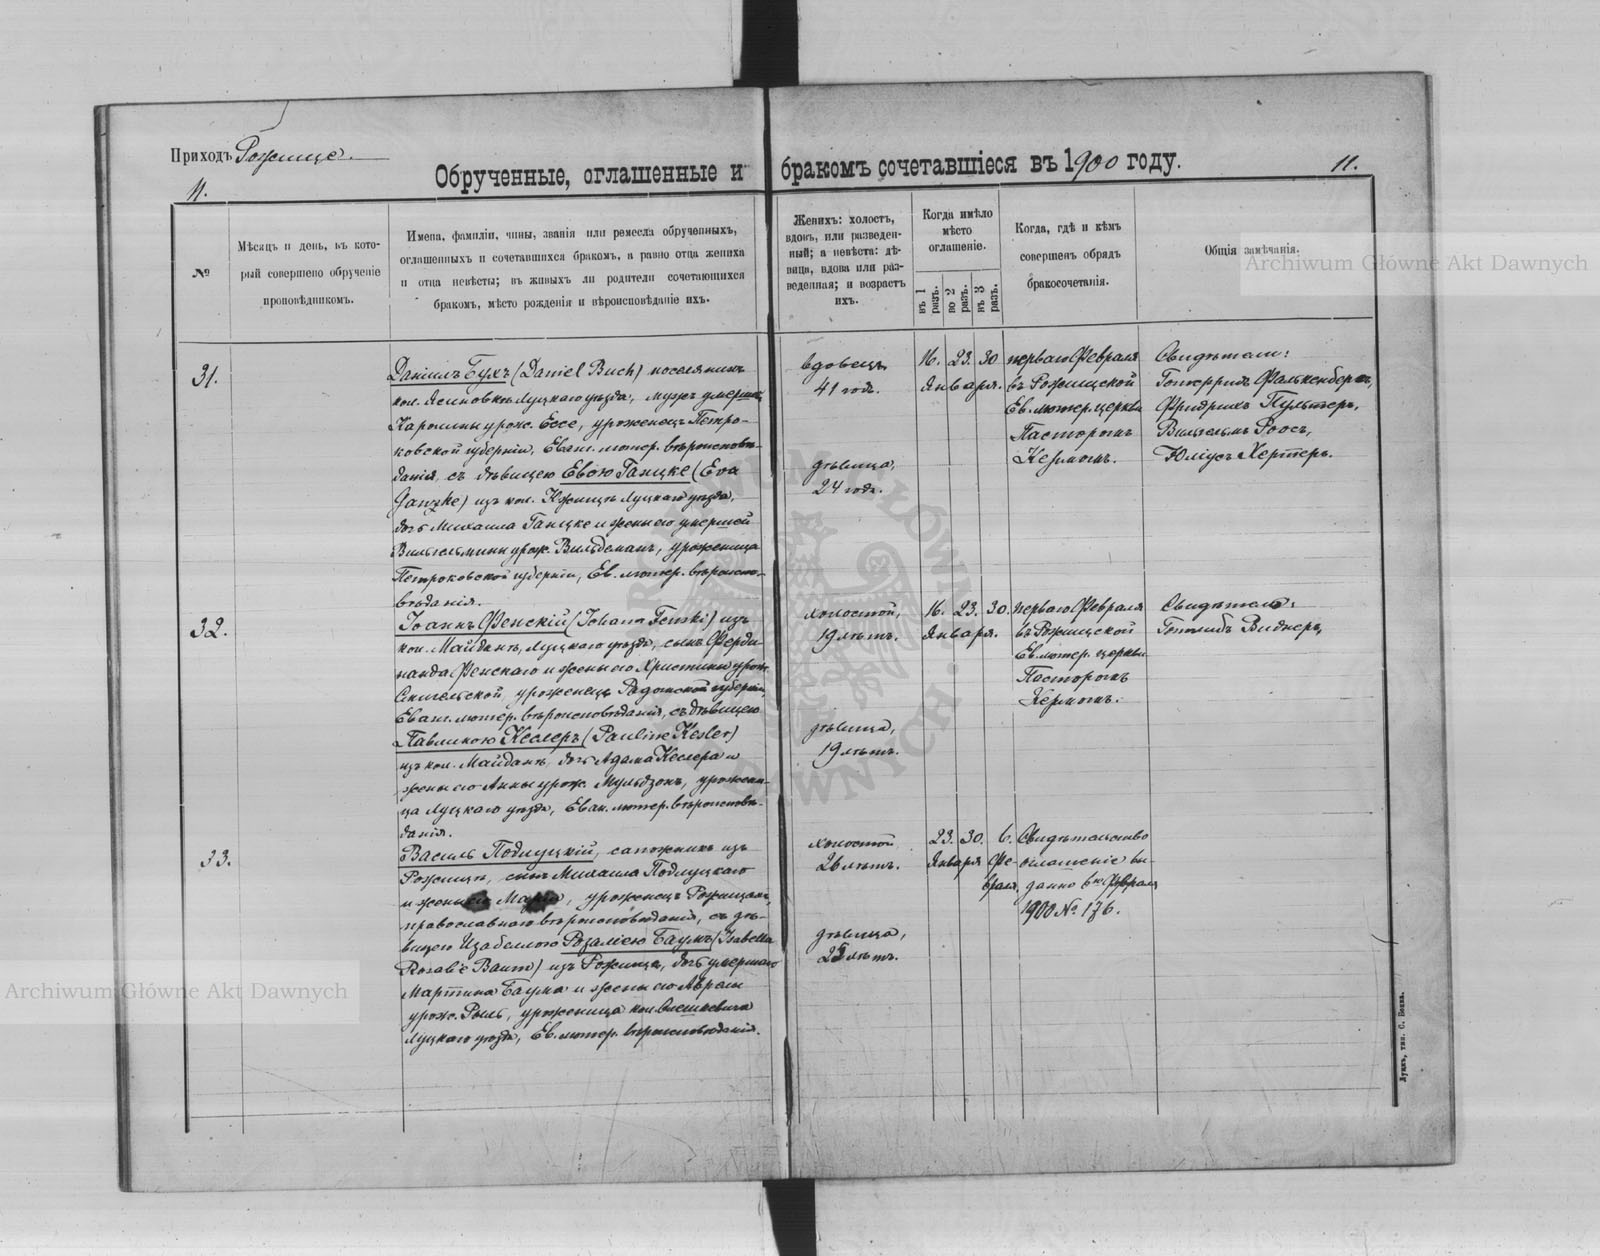 Приходъ Рожище.
11.
Обрученные, оглашенные и бракомъ сочетавшіеся въ 1900 году.
11.
№
Мѣсяцъ и день, въ кото-
рый совершено обрученіе
проповѣдникомъ.
Имена, фамиліи, чины, званія или ремесла обрученныхъ,
оглашенныхъ и сочетавшихся бракомъ, а равно отца жениха
и отца невѣсты; въ живыхъ ли родители сочетающихся
бракомъ, мѣсто рожденія и вѣроисповѣданіе ихъ.
Женихъ: холостъ,
вдовъ, или разведен-
ный; а невѣста: дѣ-
вица, вдова или раз-
веденная; и возрастъ
ихъ.
Когда имѣло
мѣсто
оглашеніе.
въ 1 разъ.
во 2 разъ.
въ 3 разъ.
Когда, гдѣ и кѣмъ
совершенъ обрядъ
бракосочетанія.
Общія замѣчанія.
31.
Даніилъ Бухъ (Daniel Buch) поселянинъ
кол. Ясиновки Луцкаго уѣзда, мужъ умершей
Каролины урож. Ессе, уроженецъ Петро-
ковской губерніи, Еванг. лютер. вѣроисповѣ-
данія, съ дѣвицею Евою Ганцке (Eva
Ganzke) изъ кол. Луцкаго уѣзда,
дочь Михаила Ганцке и жены его умершей
Вильгельмины урож. Вильдеманъ, уроженица
Петроковской губерніи, Ев. лютер. вѣроиспо-
вѣданія.
вдовецъ
41 годъ.
дѣвица,
24 года.
16. 23. 30
Января.
перваго Февраля
въ Рожищской
Ев. лютер. церкви
Пасторомъ
Кермомъ.
Свидѣтели:
Готфридъ Фалькенбергъ,
Фридрихъ Пультеръ,
Вильгельмъ Роосъ,
Юліусъ Хертеръ.
32.
Іоаннъ Фенскій (Johann Fenski) изъ
кол. Майданъ, Луцкаго уѣзда, сынъ Ферди-
нанда Фенскаго и жены его Христины урож.
уроженецъ Радомской губерніи,
Еванг. лютер. вѣроисповѣданія, съ дѣвицею
Павлиною Кеслеръ (Pauline Kesler)
изъ кол. Майданъ, дочь Адама Кеслера и
жены его Анны урож. уроженн-
ца Луцкаго уѣзда, Еван. лютер. вѣроисповѣ-
данія.
холостой,
19 лѣтъ.
дѣвица,
19 лѣтъ.
16. 23. 30.
Января.
перваго Февраля
въ Рожищской
Ев. лютер. церкви
Пасторомъ
Кермомъ.
Свидѣтель:
Готлибъ Виднеръ,
33.
Василь Подлуцкій, сапожникъ изъ
Рожищъ, сынъ Михаила Подлуцкаго
и жены его Маріи, уроженецъ Рожищъ,
православнаго вѣроисповѣданія, съ дѣ-
вицею Изабеллою Розаліею Баумъ (Isabella
Rosalie Baum) изъ Рожища, дочь умершаго
Мартина Баума и жены его
урож. уроженица кол.
Луцкаго уѣзда, Ев. лютер. вѣроисповѣданія.
холостой
26 лѣтъ.
дѣвица,
лѣтъ.
23. 30. 6.
Января Фе-
враля.
Свидѣтельство
оглашеніе вы-
дано 6го Февраля
1900 № 176.
Луцкъ, тип. С. Бонка.
Archiwum Główne Akt Dawnych
Archiwum Główne Akt Dawnych